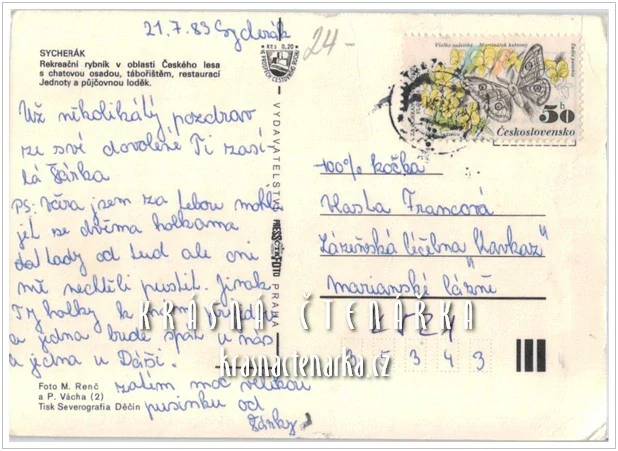 21.7.83 Sycherák
24-
SYCHERÁK
Rekreační rybník v oblasti Českého lesa
s chatovou osadou, tábořištěm, restaurací
Jednoty a půjčovnou loděk.
Kčs 0,20
Už několikátý pozdrav
ze své dovolené Ti zasí-
lá Šárka
PS: Včera jsem za Tebou mohla
jet se dvěma holkama
do Lady od tud ale oni
mě nechtěli pustit. Jinak
Ty holky k nám
a jedna bude spát u nás
a jedna u Dáši.
zatím moc velikou
pusinku od
Šárky
Foto M. Renč
a P. Vácha (2)
Tisk Severografia Děčín
VYDAVATELSTVÍ PRESSFOTO PRAHA
50 h
Československo
100% kočka
Vlasta Francová
Lázeňská léčebna "Kavkaz"
Marianské lázně
KRÁSNÁ ČTENÁŘKA
krasnactenarka.cz
35343